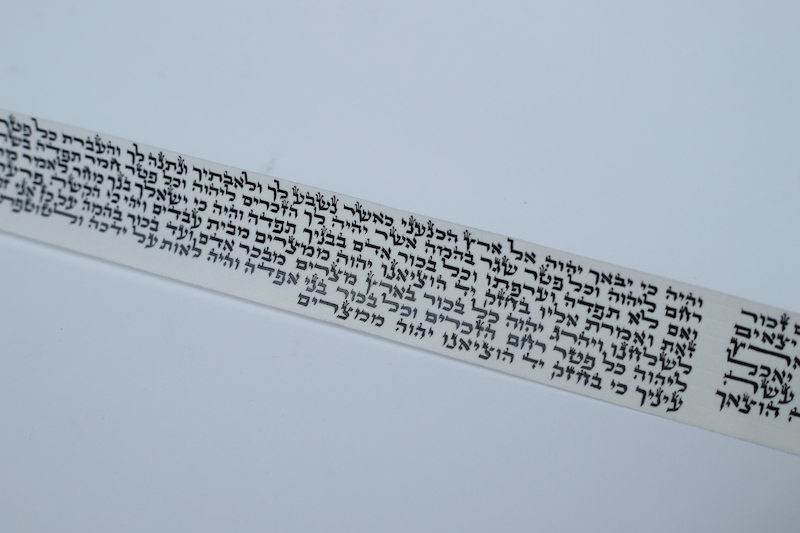 זכור
יצאים
עשר
הוצאך
והיה כי יבאך יהוה אל ארץ הכנעני כאשר נשבע לך ולאבתיך ונתנה לך והעברת כל פטר
רחם ליהוה וכל פטר שגר בהמה אשר יהיה לך הזכרים ליהוה וכל פטר חמר תפדה בשה
ואם לא תפדה וערפתו וכל בכור אדם בבניך תפדה והיה כי ישאלך בנך מחר לאמר מה
זאת ואמרת אליו בחזק יד הוציאנו יהוה ממצרים מבית עבדים ויהי כי הקשה פרעה
לשלחנו ויהרג יהוה כל בכור בארץ מצרים מבכר אדם ועד בכור בהמה על כן אני
ליהוה כל פטר רחם הזכרים וכל בכור בני אפדה והיה לאות על ידכה ולטוטפת
עיניך כי בחזק יד הוציאנו יהוה ממצרים